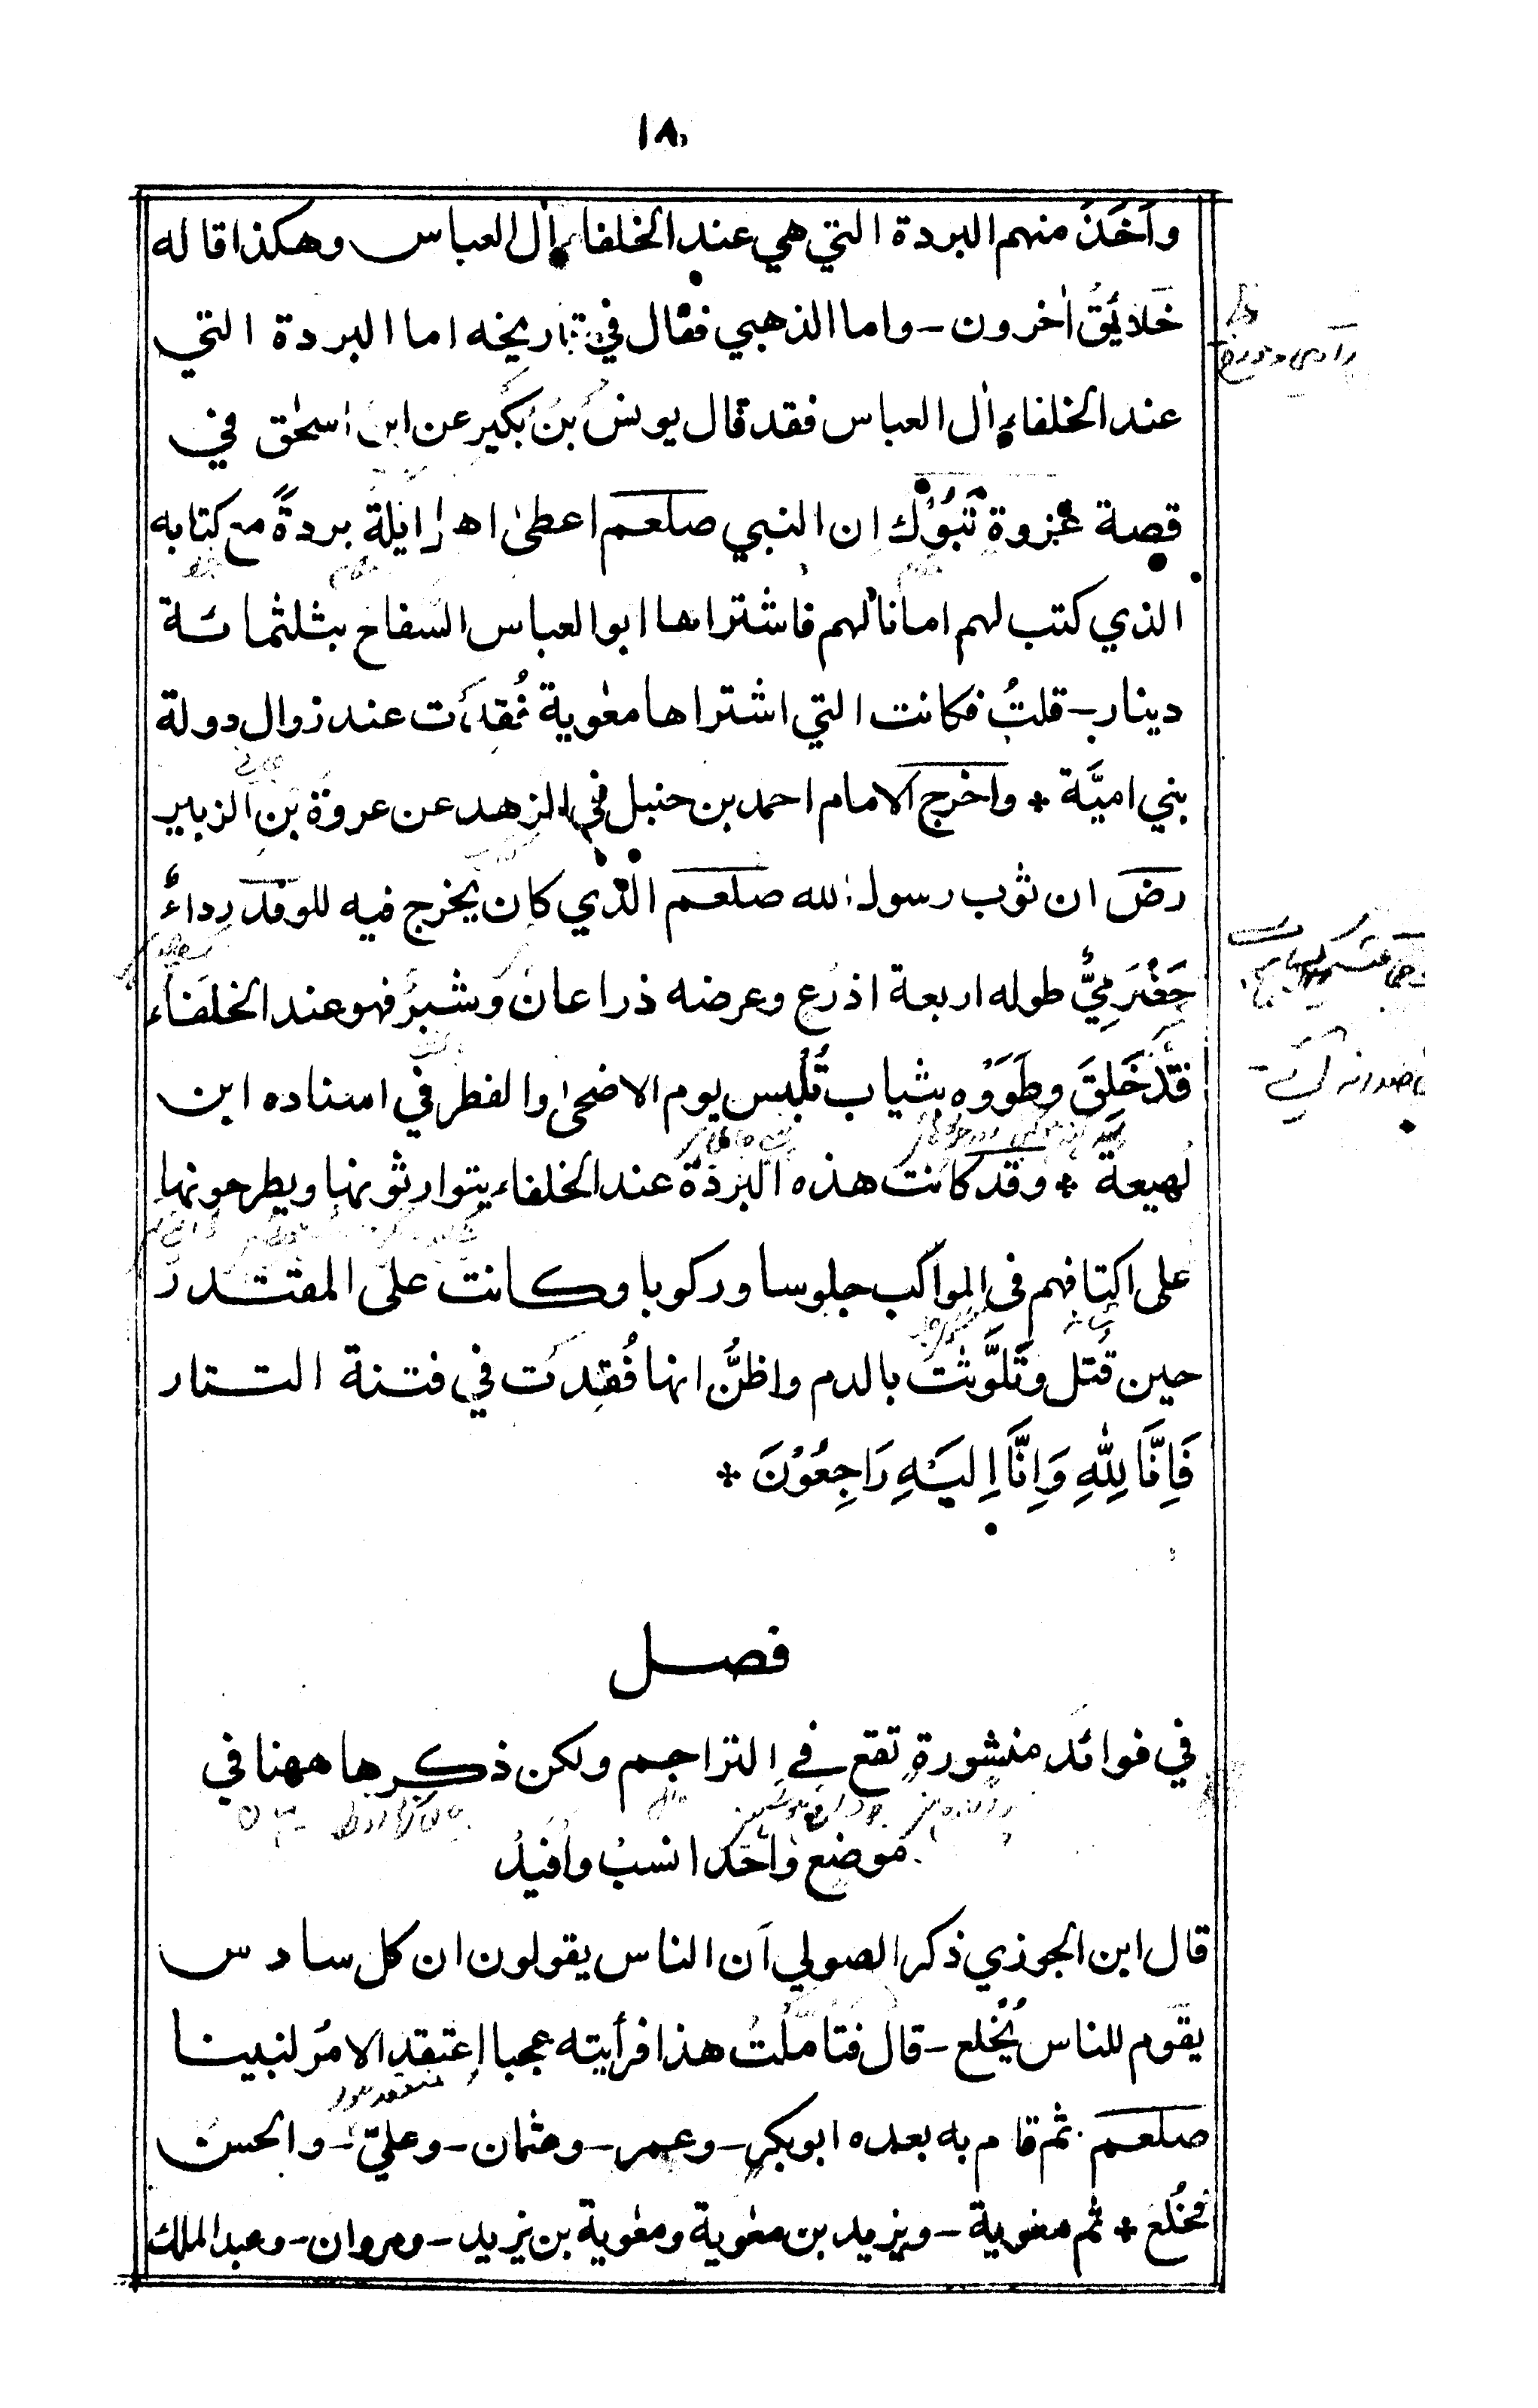 ١٨
وَاَخَذَ منهم البردة التي هي عند الخلفاء اٰل العباس وهكذا قاله
خَلائِقُ اٰخرون - واما الذهبي فقال في تاريخه اما البردة التي
عند الخلفاء اٰل العباس فقد قال يونس بن بُكَير عن ابن اسحٰق في
قصة غزوة تَبُوْك ان النبي صلعم اعطىٰ اهل ايلة بردةً مع كتابه
الذي كتب لهم امانا لهم فاشتراها ابوالعباس السفاح بثلثمائة
دينار - قلتُ فكانت التي اشتراها معٰوية فُقِدَت عند زوال دولة
بني اميَّة * واخرج الامام احمد بن حنبل في الزهد عن عروة بن الزبير
رض ان ثوب رسول الله صلعم الذي كان يخرج فيه للوفد رداءٌ
حَضْرَمِيٌّ طوله اربعة اذرع وعرضه ذراعان وشبر فهو عند الخلفاء
قَدْ خَلِقَ وطَوَوْه بثياب تُلْبس يوم الاضحىٰ والفطر في اسناده ابن
لهيعة * وقد كانت هذه البردة عند الخلفاء يتوارثونها ويطرحونها
على اكتافهم في المواكب جلوسا وركوبا وكانت على المقتدر
حين قُتل وتَلَوَّثت بالدم واظنُّ انها فُقِدَت في فتنة التتار
فَاِنَّا لِلّٰهِ وَاِنَّا اِلَيْهِ رَاجِعُوْنَ *
فصل
في فوائد منثورة تقع في التراجم ولكن ذكرها ههنا في
موضع واحد انسبُ وافيدُ
قال ابن الجوزي ذكر الصولي ان الناس يقولون ان كل سادس
يقوم للناس يُخْلع - قال فتأملتُ هذا فرأيته عجبا اعتقد الامر لنبينا
صلعم ثم قام به بعده ابوبكر - وعمر - وعثمان - وعليّ - والحسن
فخُلع * ثم معٰوية - ويزيد بن معٰوية ومعٰوية بن يزيد - ومروان - وعبد الملك